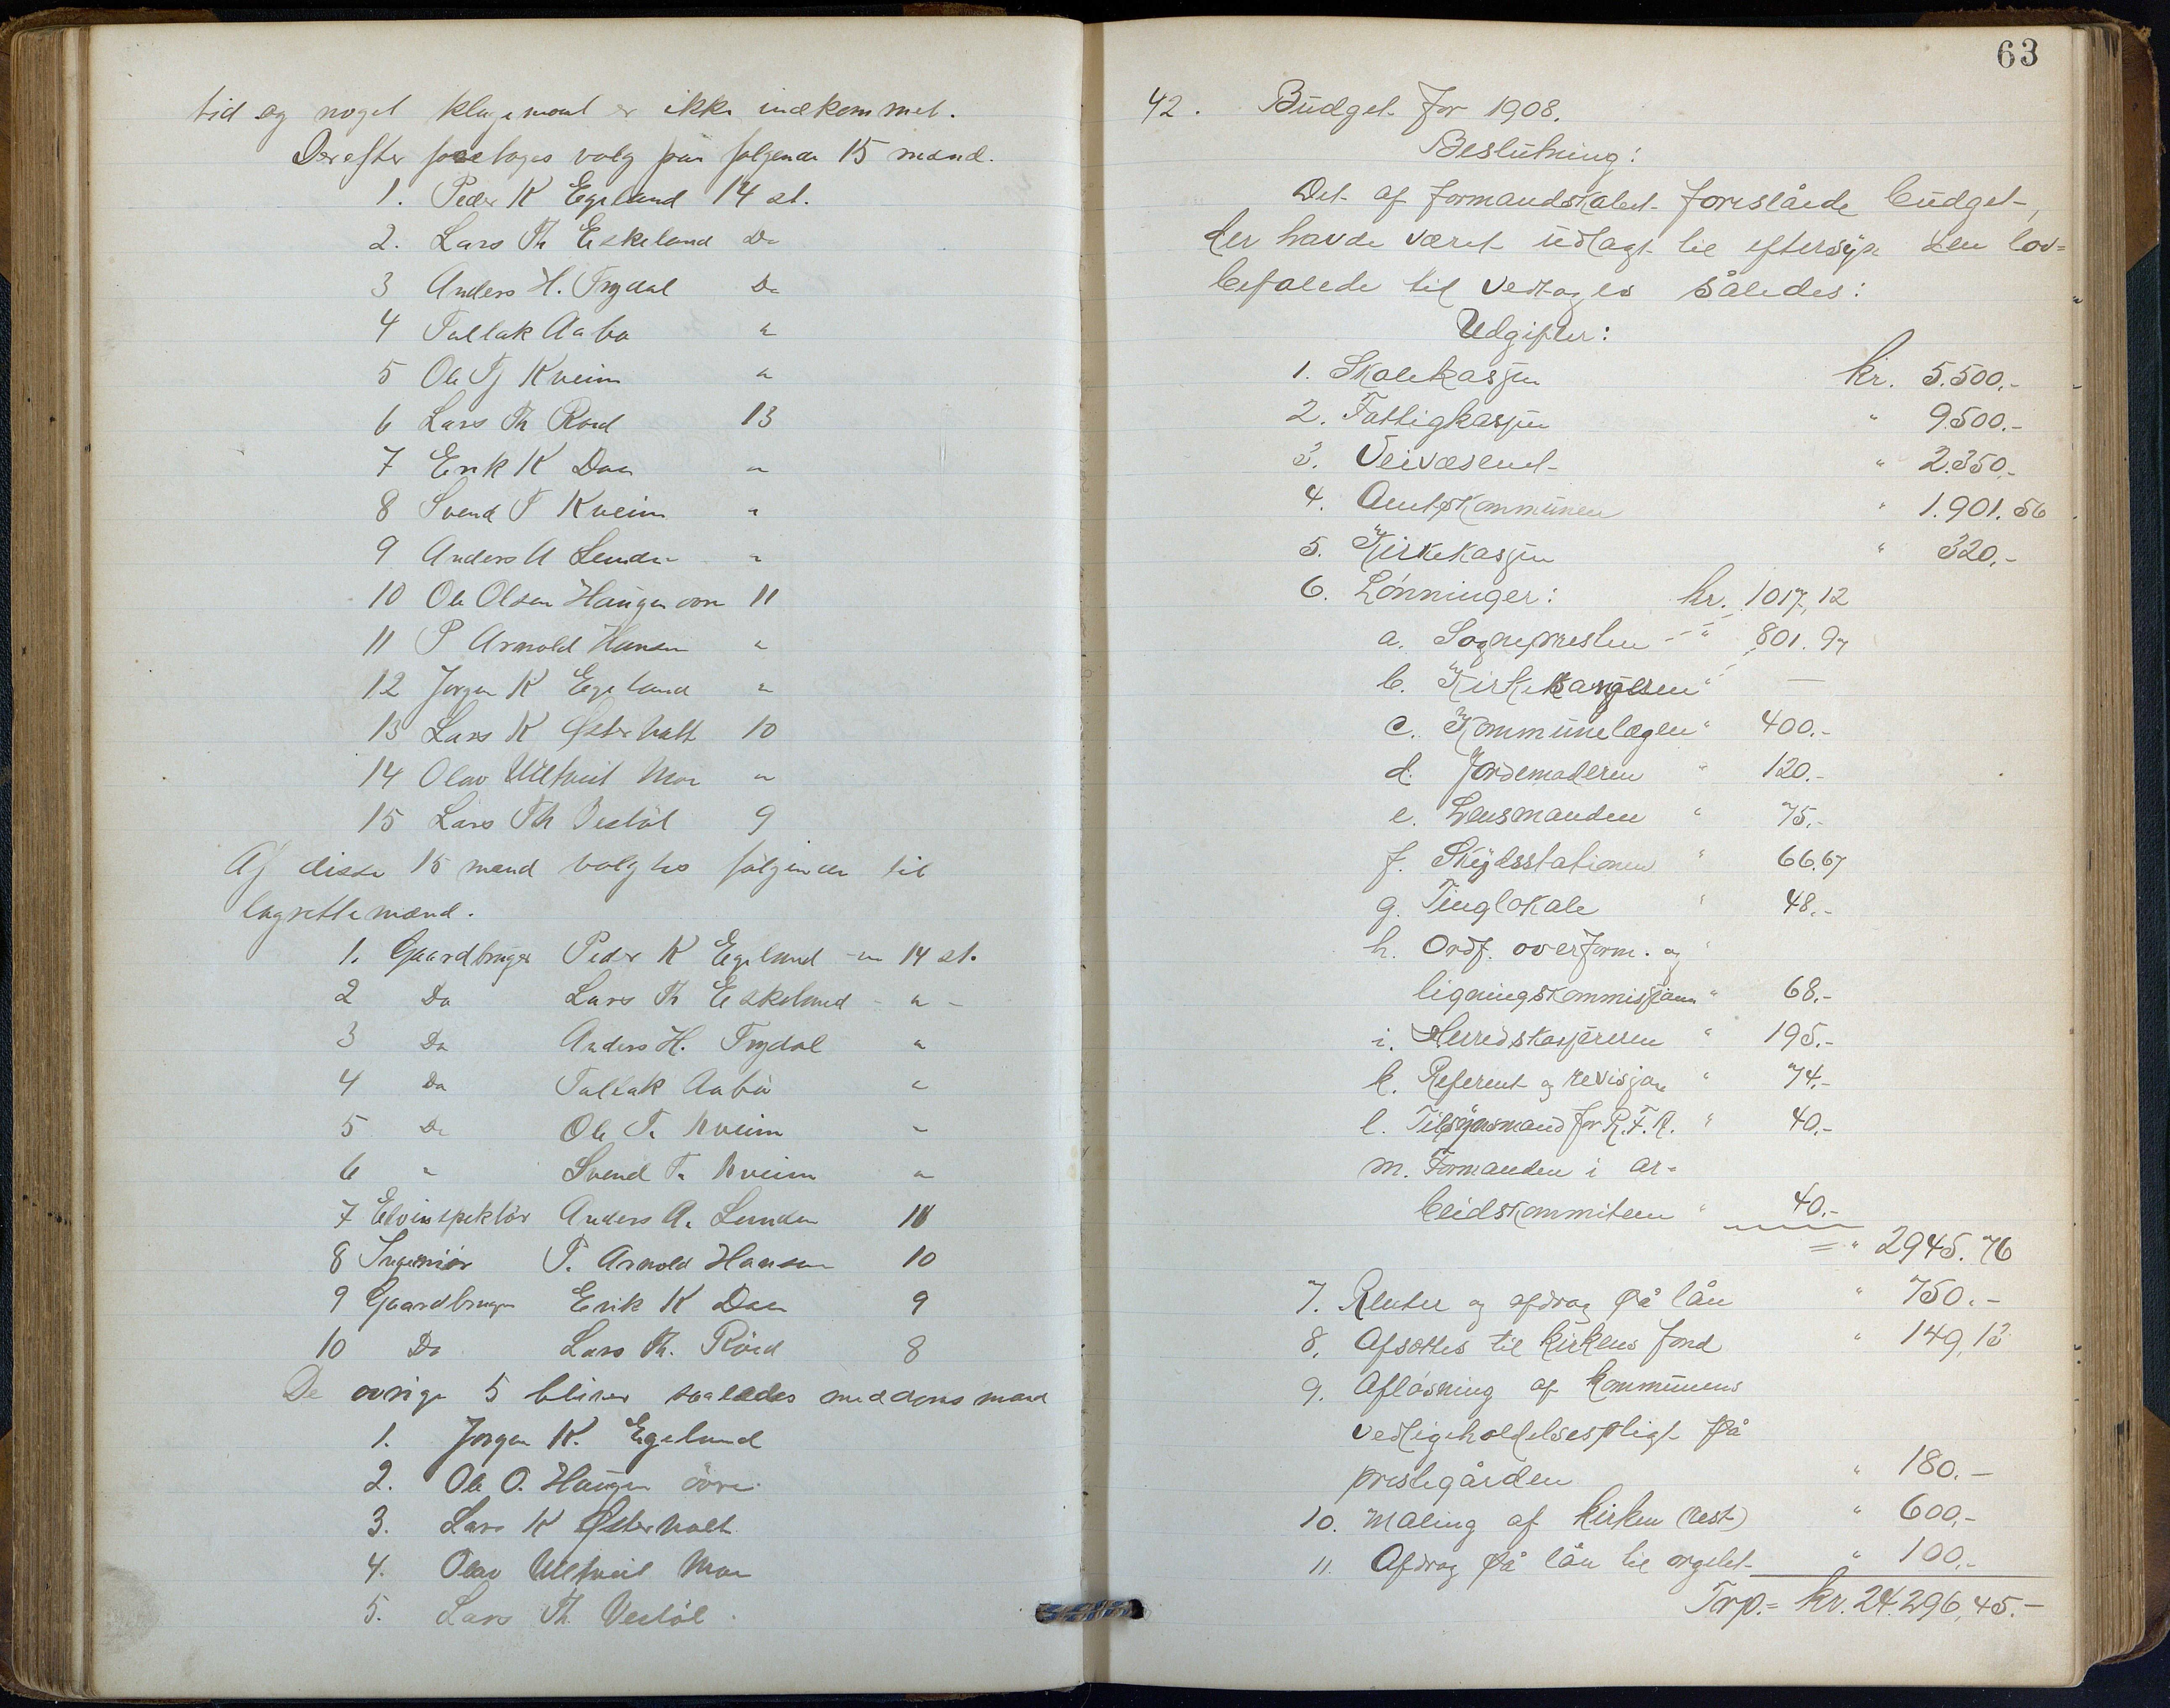 tid og noget klagemaal er ikke indkommet.
Derefter foretoges valg paa følgende 15 mænd.
1. Peder K Egeland 14 st.
2. Lars Th Eskeland Do
3 Anders H. Trydal Do
4 Tallak Aabø "
5 Ole Tj Kveim "
6 Lars Th Røed 13
7 Erik K Daa "
8 Svend T Kveim "
9 Anders A Lunden "
10 Ole Olsen Haugen övre 11
11 P Arnold Hansen "
12 Jorgen K Egeland "
13 Lars K Østerholt 10
14 Olav Ulltveit Moe "
15 Lars Th Vestøl 9
Af disse 15 mænd valgtes følgende til
lagrettemænd.
1. Gaardbruger Peder K Egeland - 14 st.
2 Do Lars Th Eskeland - " -
3 Do Anders H. Trydal "
4 Do Tallak Aabö "
5 Do Ole T. Kveim "
6 " Svend T. Kveim "
7 Elvinspektör Anders A. Lunden 11
8 Ingeniör P. Arnold Hansen 10
9 Gaardbruger Erik K Daa 9
10 Do Lars Th. Röed 8
De ovrige 5 bliver saaledes meddomsmænd
1. Jorgen K. Egeland
2. Ole O. Haugen övre.
3. Lars K Østerholt
4. Olav Ulltveit Moe
5. Lars Th. Vestöl.
63
42. Budget for 1908.
Beslutning:
Det af formandskabet foreslåede budget,
der havde været udlagt til eftersyn den lov=
befalede tid vedtages således:
Udgifter:
1. Skolekassen kr. 5.500,-
2. Fattigkassen " 9.500.-
3. Veivæsenet " 2.350,-
4. Amtskommunen " 1.901.56
5. Kirkekassen " 320,-
6. Lønninger: kr. 1017,12
a. Sognepresten - " 801.97
b. Kirkesangeren " —
c. Kommunelægen " 400.-
d. Jordemoderen " 120.-
e. Lensmanden " 75.-
f. Skydsstationen " 66.67
g. Tinglokale " 48.-
h. Ordf. overform. og "
ligningskommissionen " 68.-
i. Herredskassereren " 195.-
k. Referent og revisjon " 74.-
l. Tilsynsmand for R.F.K. " 40.-
m. Formanden i ar=
beidskommiteen " 40.-
= " 2945.76
7. Renter og afdrag på lån " 750.-
8. Afsættes til kirkens fond " 149,13
9. Afløsning af kommunens
vedligeholdelsespligt på
prestegården " 180.-
10. Maling af kirken (rest) " 600,-
11. Afdrag på lån til orgelet " 100,-
Trp.= kr. 24.296,45.-